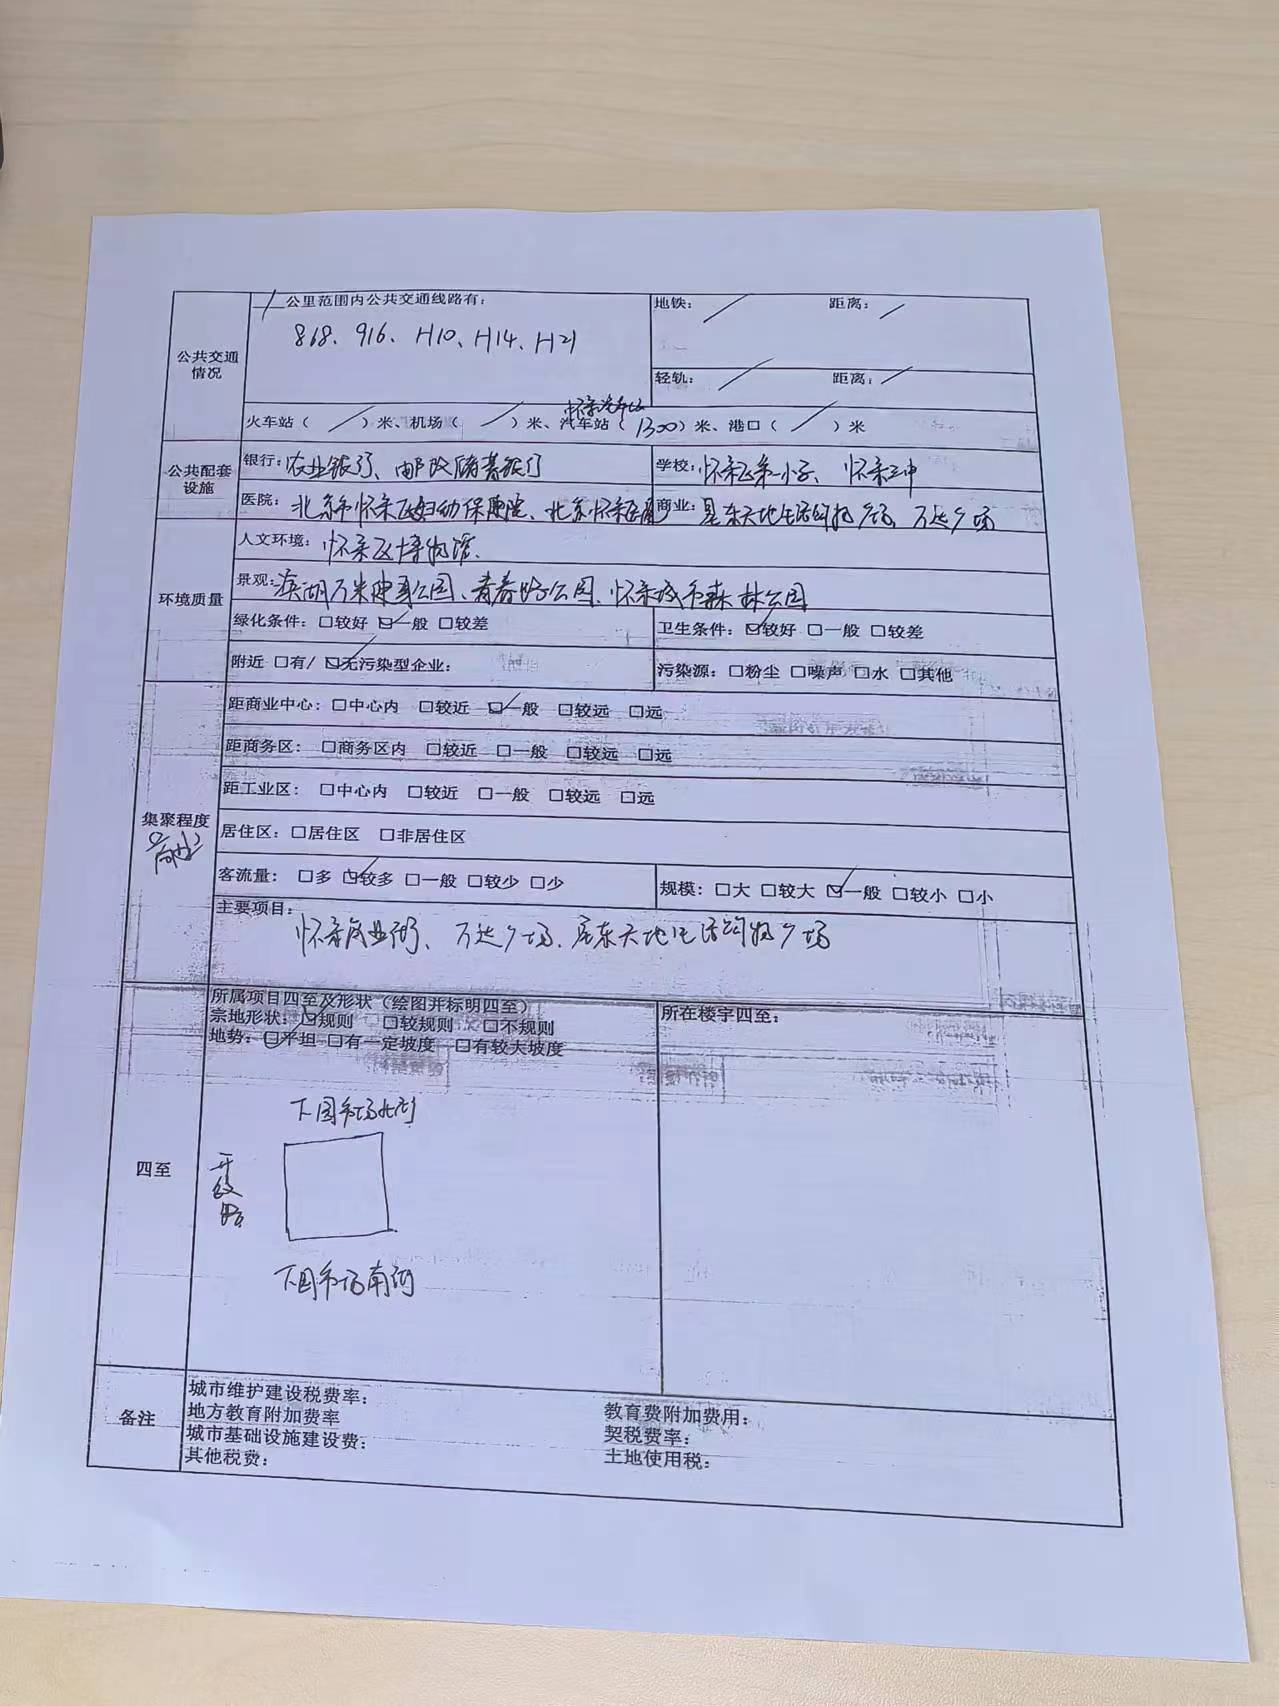 公共交通情况
一公里范围内公共交通线路有：
868、916、H10、H14、H21
地铁：／ 距离：／
轻轨：／ 距离：／
怀柔汽车站
火车站（ ／ ）米、机场（ ／ ）米、汽车站（1300）米、港口（ ／ ）米
公共配套设施
银行：农业银行、邮政储蓄银行
学校：怀柔区第一小学、怀柔三中
医院：北京市怀柔区妇幼保健院、北京怀柔医院
商业：星东天地生活购物广场、万达广场
环境质量
人文环境：怀柔区博物馆
景观：滨湖万米健身公园、青春路公园、怀柔城市森林公园
绿化条件：□较好 ☑一般 □较差
卫生条件：☑较好 □一般 □较差
附近 □有/ ☑无污染型企业：
污染源：□粉尘 □噪声 □水 □其他
集聚程度
商业
距商业中心：□中心内 □较近 ☑一般 □较远 □远
距商务区：□商务区内 □较近 □一般 □较远 □远
距工业区：□中心内 □较近 □一般 □较远 □远
居住区：□居住区 □非居住区
客流量：□多 ☑较多 □一般 □较少 □少
规模：□大 □较大 ☑一般 □较小 □小
主要项目：
怀柔商业街、万达广场、星东天地生活购物广场
四至
所属项目四至及形状（绘图并标明四至）
宗地形状：☑规则 □较规则 □不规则
地势：☑平坦 □有一定坡度 □有较大坡度
所在楼宇四至：
下园市场北街
开放路
下园市场南街
备注
城市维护建设税费率：
地方教育附加费率
教育费附加费用：
城市基础设施建设费：
契税费率：
其他税费：
土地使用税：